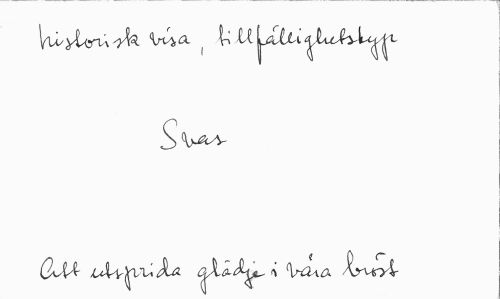 historisk visa, tillfällighetstyp
Svar
Att utsprida glädje i våra bröst